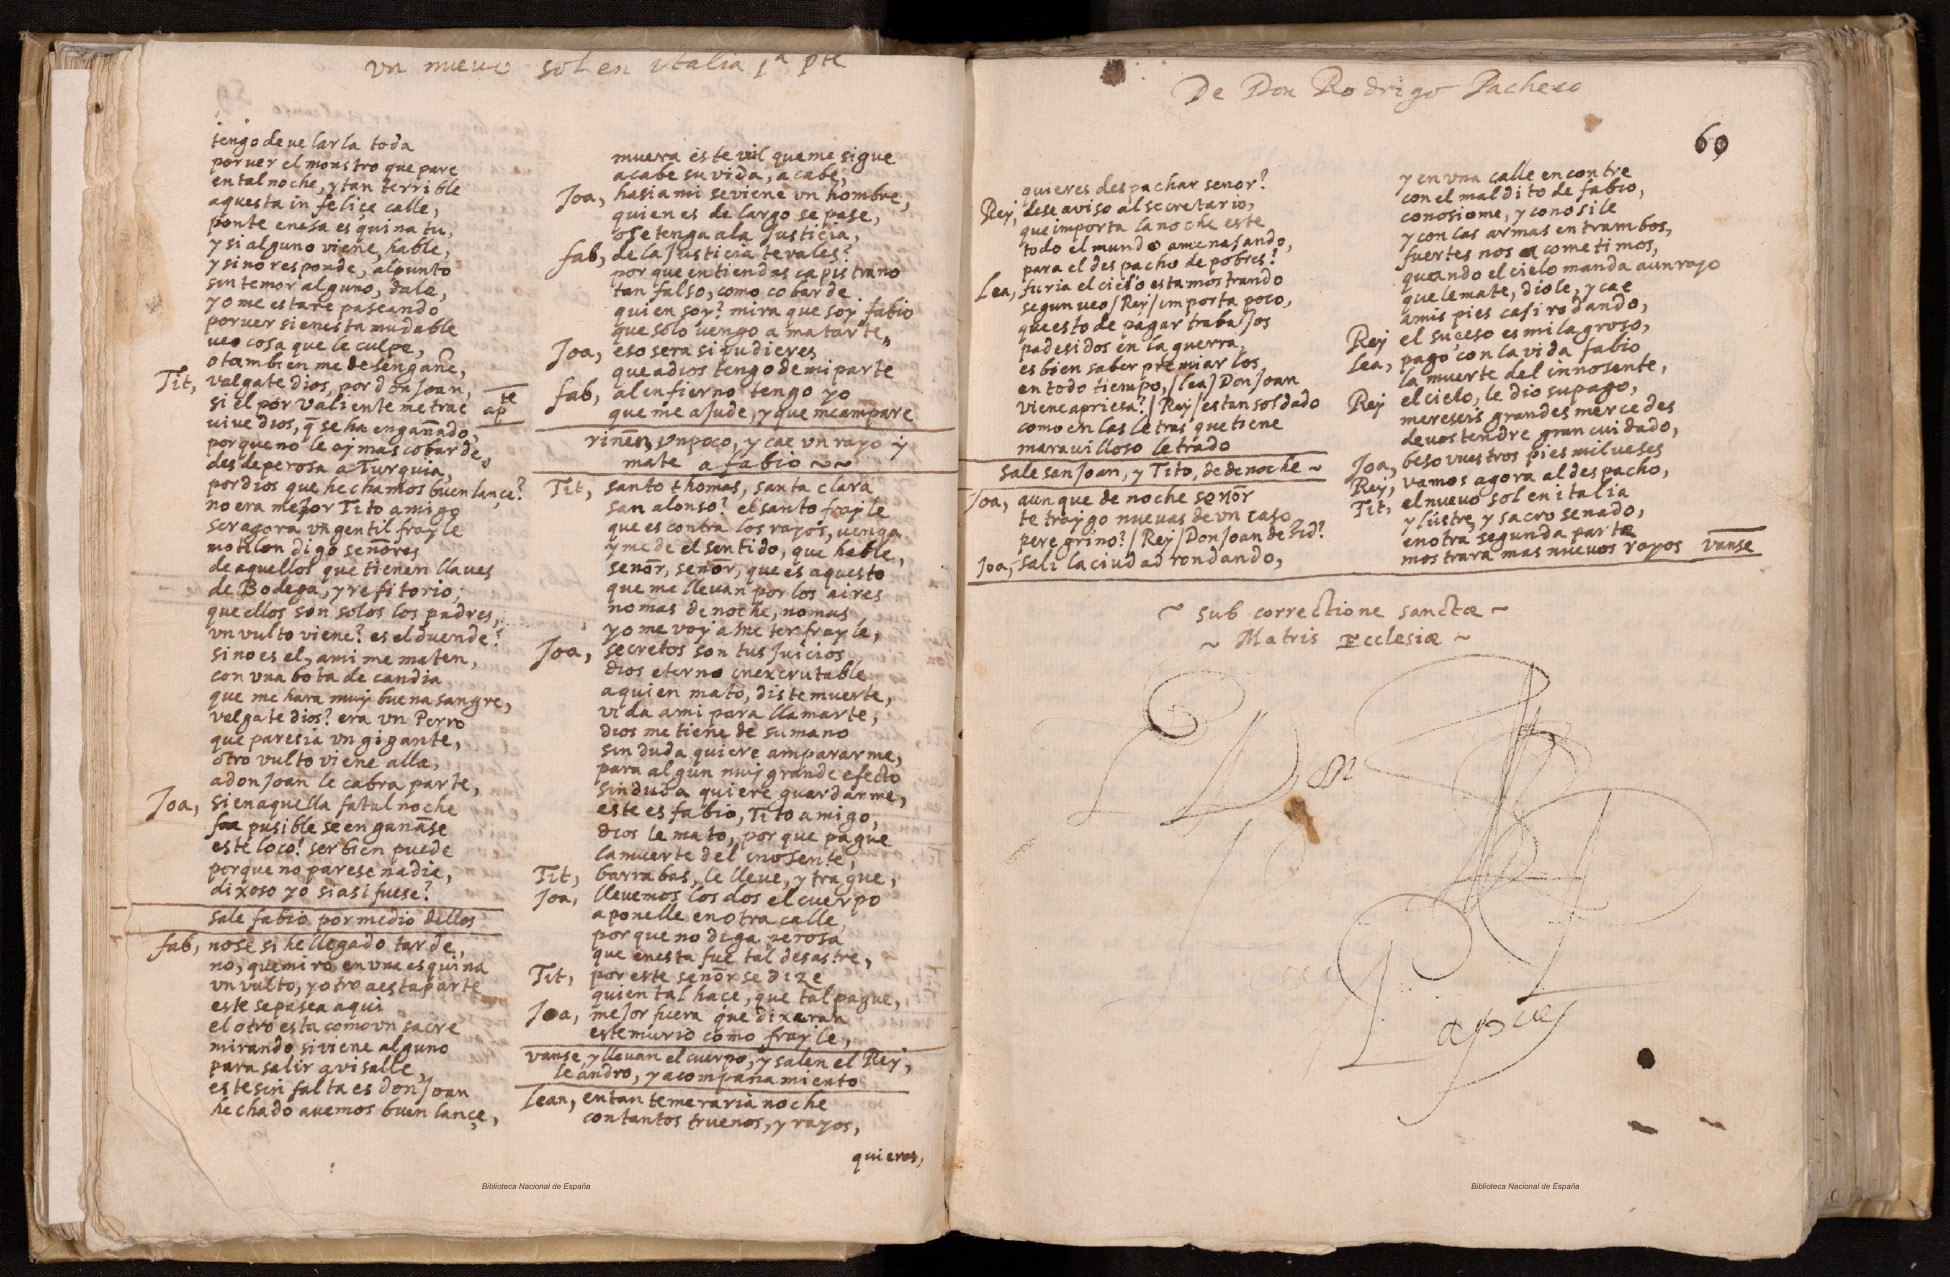 un nuevo sol en italia 1ª pte
tengo de velarla toda
por ver el monstro que pare
en tal noche, y tan terrible
aquesta in felice calle,
ponte en esa esquina tu,
y si alguno viene, hable,
y si no responde, al punto
sin temor alguno, dale,
yo me estare paseando
por ver si en ista mudable
veo cosa que le culpe,
o tambien me desengañe,
Tit, valgate dios, por don Joan,
si el por valiente me trae apte
vive dios, q̃ se ha engañado,
porque no le ay mas cobarde,
desde perosa a Turquia,
por dios que hechamos buen lançe?
no era mejor Tito amigo
ser agora un gentil frayle
motilon digo señores
de aquellos que tienen llaves
de Bodega, y refitorio,
que ellos son solos los padres,
un vulto viene? es el duende?
si no es el, a mi me maten,
con una bota de candia
que me hara muy buena sangre,
valgate dios? era un Perro
que paresia un gigante,
otro vulto viene alla,
a don Joan le cabra parte,
Joa, si en aquella fatal noche
fue pusible se engañase
este loco! ser bien puede
porque no parese nadie,
dixoso yo si asi fuese?
sale fabio por medio dellos
fab, no se si he llegado tarde,
no, que miro en una esquina
un vulto, y otro a esta parte
este se pasea aqui
el otro esta como un sacre
mirando si viene alguno
para salir avisalle,
este sin falta es don Joan
hechado avemos buen lançe,
muera este vil que me sigue
acabe su vida, acabe,
Joa, hasia mi se viene un hombre,
quien es de largo se pase,
o se tenga a la Justicia,
fab, de la Justicia te vales?
por que entiendas capistrano
tan falso, como cobarde
quien soy? mira que soy fabio
que solo vengo a matarte,
Joa, eso sera si pudieres
que a dios tengo de mi parte
fab, al infierno tengo yo
que me ajude, y que me ampare
riñen, un poco, y cae un rayo y
mate a fabio ~ ~
Tit, santo thomas, santa clara
san alonso? el santo frayle
que es contra los rayos, venga
y me de el sentido, que hable,
señor, señor, que es aquesto
que me llevan por los aires
no mas de noche, no mas
yo me voy a meter frayle,
Joa, secretos son tus juicios
dios eterno inexcrutable
a quien mato, diste muerte,
vida a mi para llamarte,
dios me tiene de su mano
sin duda quiere ampararme,
para algun muy grande efecto
sin duda quiere guardarme,
este es fabio, Tito amigo,
dios le mato, por que pague
la muerte del inosente,
Tit, barrabas, le lleve, y trague,
Joa, llevemos los dos el cuerpo
a ponelle en otra calle
por que no diga perosa
que en esta fue tal desastre,
Tit, por este señor se dize
quien tal hace, que tal pague,
Joa, mejor fuera que dixaran
este murio como frayle,
vanse, y llevan el cuerpo, y salen el Rey,
leandro, y acompañamiento
Lean, en tan temeraria noche
con tantos truenos, y rayos,
quieres,
De Don Rodrigo Pacheco
60
quieres despachar señor?
Rey, dese aviso al secretario,
que importa la noche este
todo el mundo amenasando,
para el despacho de pobres?
Lea, furia el cielo esta mostrando
segun veo / Rey / importa poco,
que esto de pagar trabajos
padesidos en la guerra,
es bien saber premiarlos
en todo tiempo, / lea / Don Joan
viene apriesa? / Rey / es tan soldado
como en las letras que tiene
maravilloso letrado
sale san Joan, y Tito, de de noche ~
Joa, aun que de noche señor
te traygo nuevas de un caso
peregrino? / Rey / Don Joan decid?
Joa, sali la ciudad rondando,
y en una calle encontre
con el maldito de fabio,
conosiome, y conosile
y con las armas entrambos,
fuertes nos acometimos,
quando el cielo manda a un rayo
que le mate, diole, y cae
a mis pies casi rodando,
Rey el suceso es milagroso,
Lea, pago con la vida fabio
la muerte del innosente,
Rey el cielo, le dio su pago,
mereseis grandes mercedes
de vos tendre gran cuidado,
Joa, beso vuestros pies mil veses
Rey, vamos agora al despacho,
Tit, el nuevo sol en italia
y lustre, y sacro senado,
en otra segunda parte
mostrara mas nuevos rayos vanse
~ Sub correctione sanctæ ~
~ Matris Ecclesiæ ~
Don
Biblioteca Nacional de España
Biblioteca Nacional de España